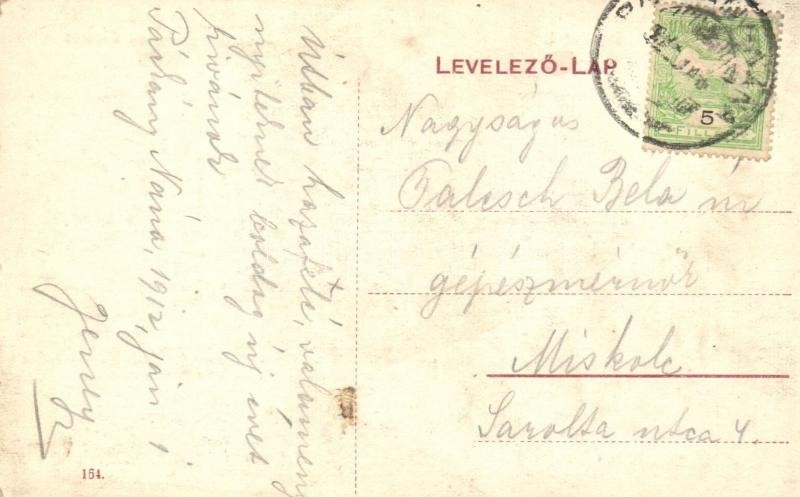 Útban hazafelé, valamenn
nyiteknek boldog új évet
kívánok
Párkány Nána, 1912, jan. 1
Jeney
LEVELEZŐ-LAP
5
FILL
Nagyságos
Bela úr
gépészmérnök
Miskolc
Sarolta utca 4.
164.